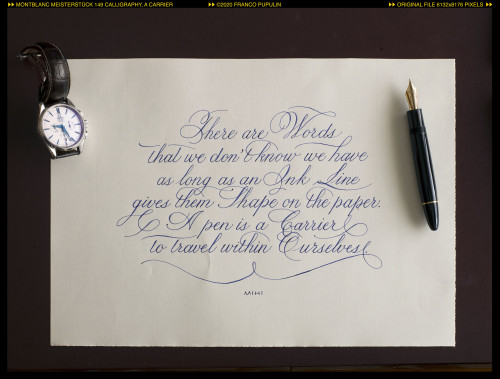 ▸▸ MONTBLANC MEISTERSTÜCK 149 CALLIGRAPHY, A CARRIER ▸▸ ©2020 FRANCO PUPULIN ▸▸ ORIGINAL FILE 6132x8176 PIXELS ▸▸
There are Words
that we don't know we have
as long as an Ink Line
gives them Shape on the paper.
A pen is a Carrier
to travel within Ourselves